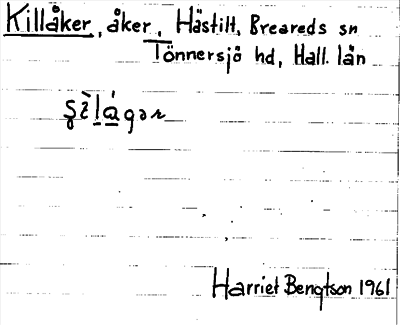 Killåker, åker, Hästilt, Breareds sn
Tönnersjö hd, Hall. län
Harriet Bengtson 1961